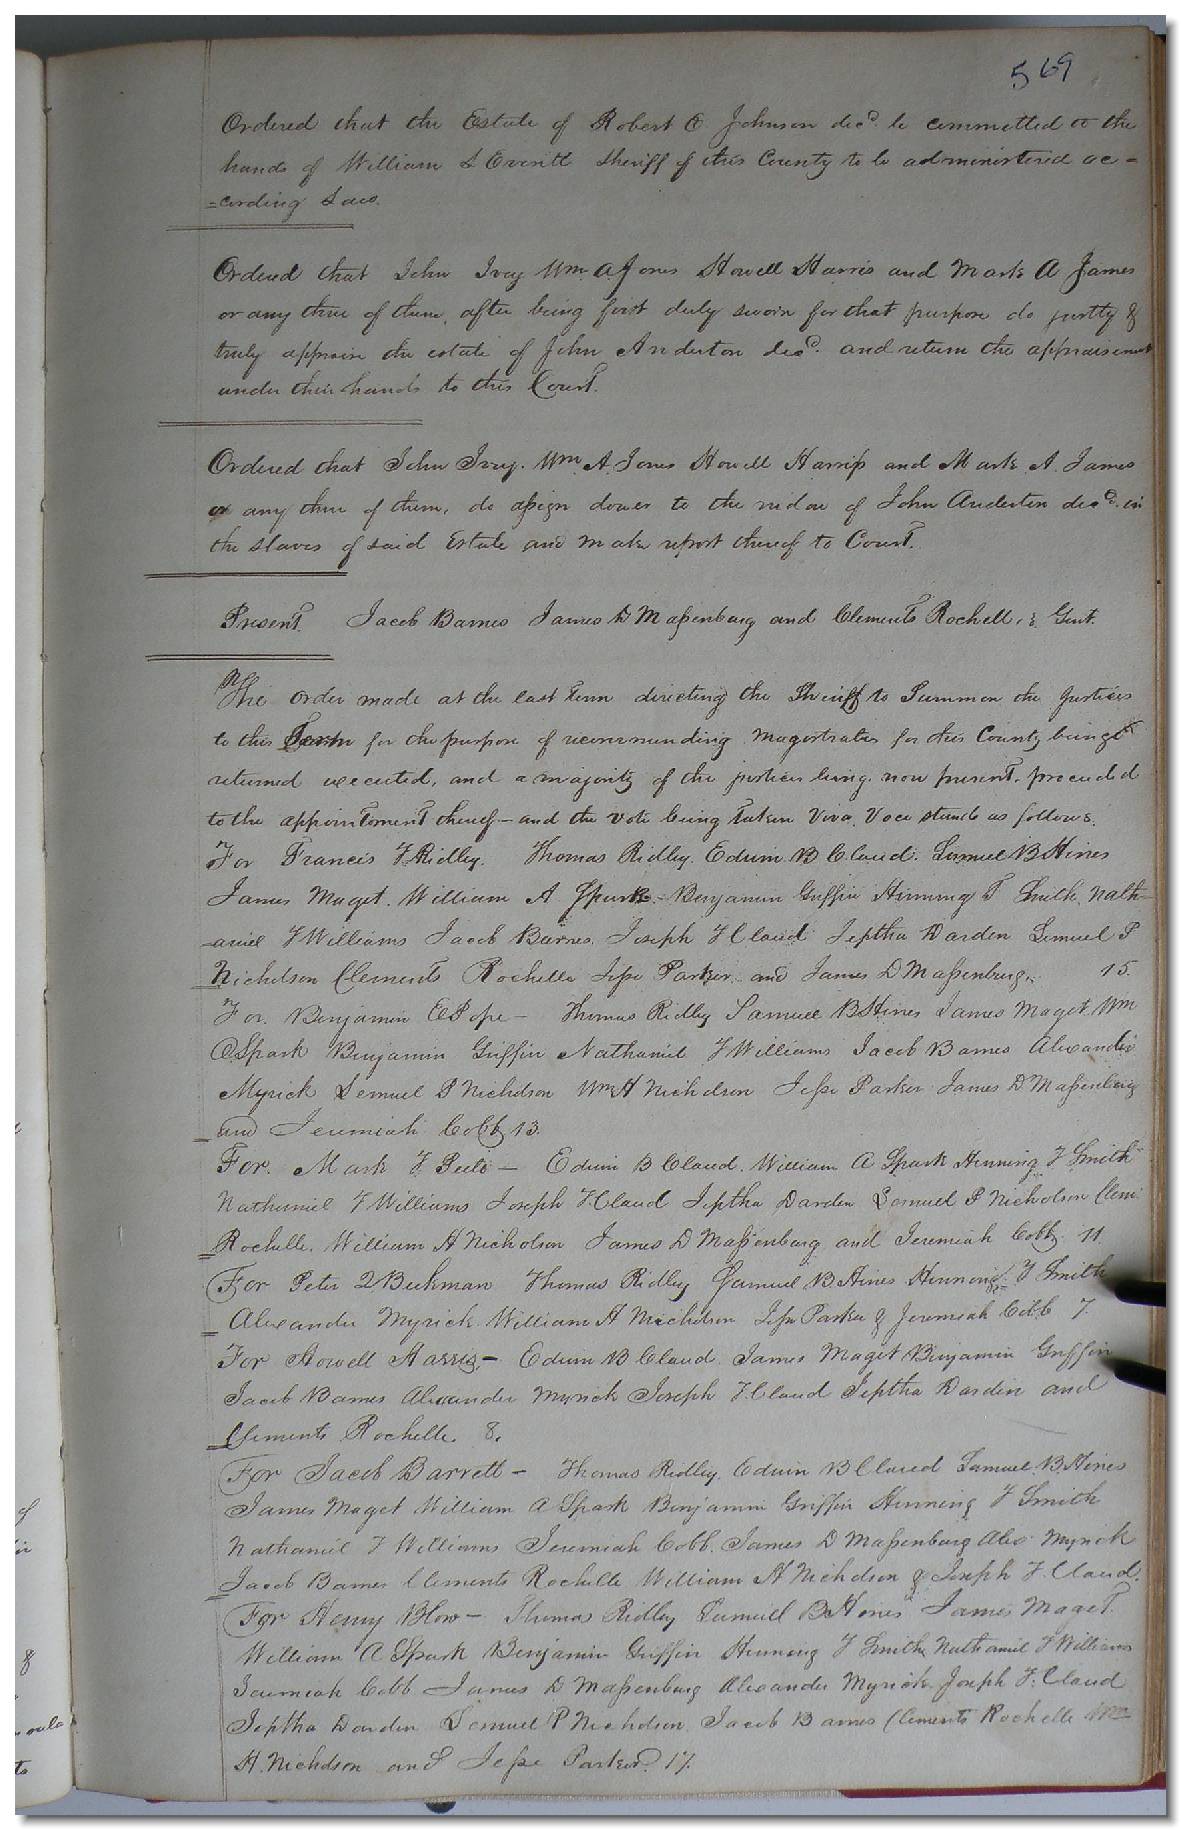 569
Ordered that the Estate of Robert C Johnson decd. be committed to the
hands of William S Everitt Sheriff of this County to be administered ac=
=cording Law.
Ordered that John Ivey Wm. A Jones Howell Harris and Mark A James
or any three of them, after being first duly sworn for that purpose do justly &
truly appraise the estate of John Anderton decd. and return the appraisement
under their hands to this Court.
Ordered that John Ivey. Wm A Jones Howell Harriss and Mark A. James
or any three of them, do assign dower to the widow of John Anderton decd. in
the slaves of said Estate and make report thereof to Court.
Present. Jacob Barnes James D Massenburg and Clements Rochelle, Gent.
The order made at the last term directing the Sheriff to Summon the justices
to this Term for the purpose of recommending Magistrates for this County being
returned executed, and a majority of the justices being now present, proceeded
to the appointment thereof — and the vote being taken Viva Voce stands as follows.
For Francis T Ridley. Thomas Ridley. Edwin B Claud. Samuel B Hines
James Maget. William A Spark. Benjamin Griffin Henning T Smith, Nath-
-aniel T Williams Jacob Barnes. Joseph T Claud Jeptha Darden Lemuel P
Nicholson Clements Rochelle Jesse Parker and James D Massenburg. 15.
For. Benjamin E Pope — Thomas Ridley Samuel B Hines James Maget. Wm
A Spark Benjamin Griffin Nathaniel T Williams Jacob Barnes Alexander
Myrick Lemuel P Nicholson Wm H Nicholson Jesse Parker James D Massenburg
and Jeremiah Cobb 13.
For. Mark T Peete — Edwin B Claud. William A Spark Henning T Smith
Nathaniel T Williams Joseph T. Claud Jeptha Darden Lemuel P Nicholson Clem
Rochelle. William H Nicholson James D Massenburg and Jeremiah Cobb. 11.
For Peter Q Beckman Thomas Ridley Samuel B. Hines Henning T Smith
Alexander Myrick William H Nicholson Jesse Parker & Jeremiah Cobb 7.
For Howell Harris, — Edwin B Claud. James Maget Benjamin Griffin
Jacob Barnes Alexander Myrick Joseph T. Claud Jeptha Darden and
Clements Rochelle. 8.
For Jacob Barrett — Thomas Ridley. Edwin B Claud Samuel. B. Hines
James Maget William A Spark Benjamin Griffin Henning T Smith
Nathaniel T Williams Jeremiah Cobb. James D Massenburg Alex Myrick
Jacob Barnes Clements Rochelle William H Nicholson & Joseph T. Claud.
For Henry Blow — Thomas Ridley Samuel B Hines James Maget.
William A Spark Benjamin Griffin Henning T Smith Nathaniel T Williams
Jeremiah Cobb James D Massenburg Alexander Myrick. Joseph T. Claud
Jeptha Darden Lemuel P Nicholson. Jacob Barnes Clements Rochelle Wm
H. Nicholson and Jesse Parker. 17.